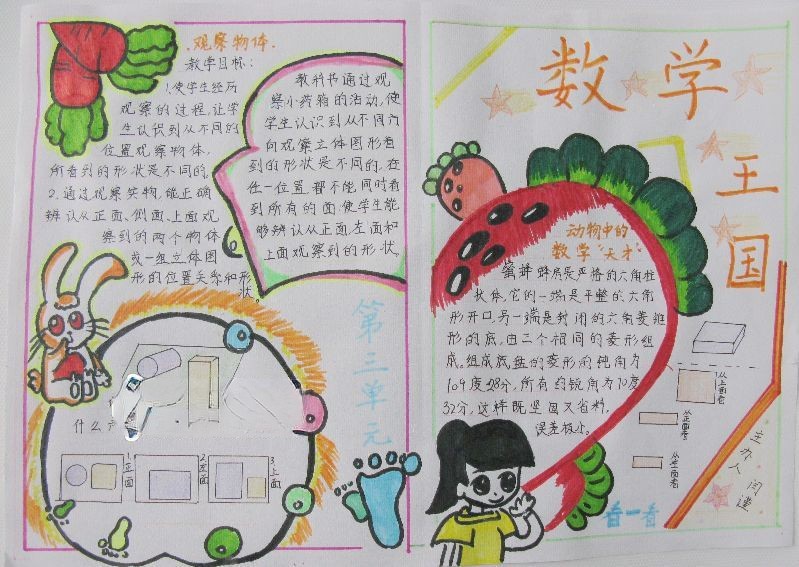 观察物体.
教学目标:
1.使学生经历
观察的过程,让学
生认识到从不同的
位置观察物体,
所看到的形状是不同的.
2.通过观察实物,能正确
辨认从正面、侧面、上面观
察到的两个物体
或一组立体图
形的位置关系和形
状。
教科书通过观
察小药箱的活动,使
学生认识到从不同方
向观察立体图形看
到的形状是不同的,在
任一位置都不能同时看
到所有的面,使学生能
够辨认从正面、左面和
上面观察到的形状.
第三单元
什么
1.正面
2.左面
3.上面
数学
王国
动物中的
数学"天才"
蜜蜂蜂房是严格的六角柱
状体,它的一端是平整的六角
形开口,另一端是封闭的六角菱锥
形的底,由三个相同的菱形组
成。组成底盘的菱形的钝角为
109度28分,所有的锐角为70度
32分,这样既坚固又省料,
误差极小。
从上面看
从左面看
看一看
主办人